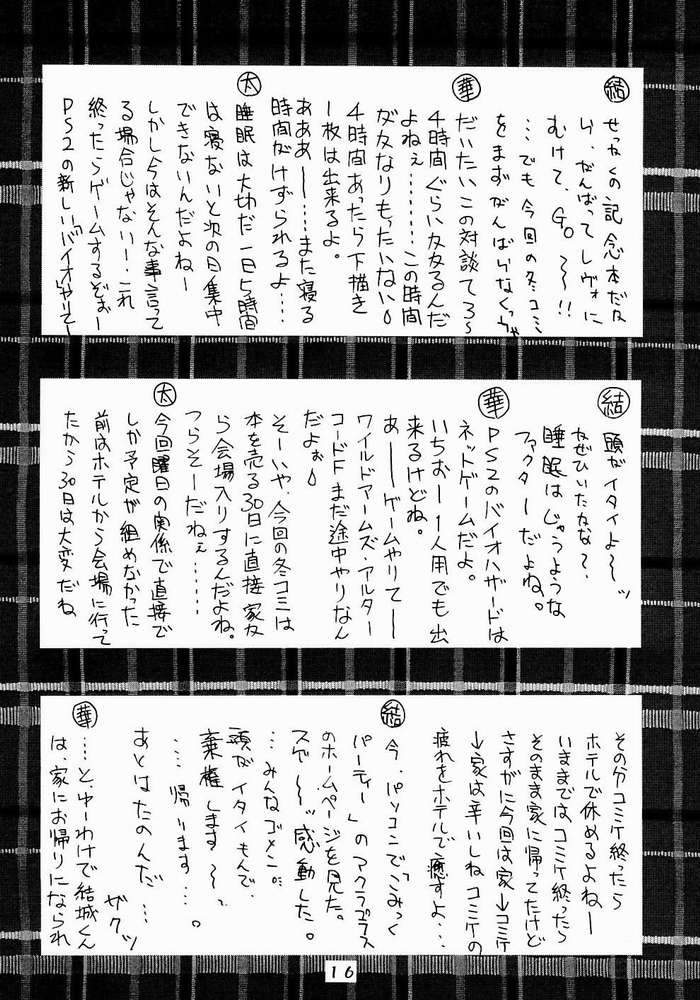 結
せっかくの記念本だな
い、がんばってレヴォに
むけて、GO〜〜!!
…でも今回の冬コミ
をまずがんばらなくっちゃ
華
だいたいこの対談てろ〜
4時間ぐらい友友るんだ
よねぇ………この時間
が友なりもったいない
4時間あったら下描き
1枚は出来るよ。
あああ——……また寝る
時間がけずられるよ……
太
睡眠は大切だ一日5時間
は寝ないと次の日集中
できないんだよねー
しかし今はそんな事言って
る場合じゃないー・これ
終ったらゲームするぞぉー
PS2の新しい「バイオ」やりてー
結
頭がイタイよ〜〜ッ
なぜひいたなな?、
睡眠はじゅうような
ファクターだよね。
華
PS2のバイオハザードは
ネットゲームだよ。
いちおー1人用でも出
来るけどね。
あ——ゲームやりて——
ワイルドアームズ・アルター
コードFまだ途中やりなん
だよぉ
そーいや、今回の冬コミは
本を売る30日に直接家友
ら会場入りするんだよね。
つらそーだねぇ……
太
今回曜日の関係で直接で
しか予定が組めなかった
前はホテルから会場に行って
たから30日は大変だね
その分コミケ終ったら
ホテルで休めるよねー
いままではコミケ終ったら
そのまま家に帰ってたけど
さすがに今回は家→コミケ
→家は辛いしね コミケの
疲れをホテルで癒すよ…
結
今、パソコンで「こみっく
パーティー」のアクラプラス
のホームページを見た。
スゲ〜〜ッ 感動した。
…みんなゴメン。
頭がイタイもんで、
棄権します〜〜。
…帰ります…。
あとはたのんだ…
ザクッ
華
…と、ゆーわけで結城くん
は、家にお帰りになられ
16